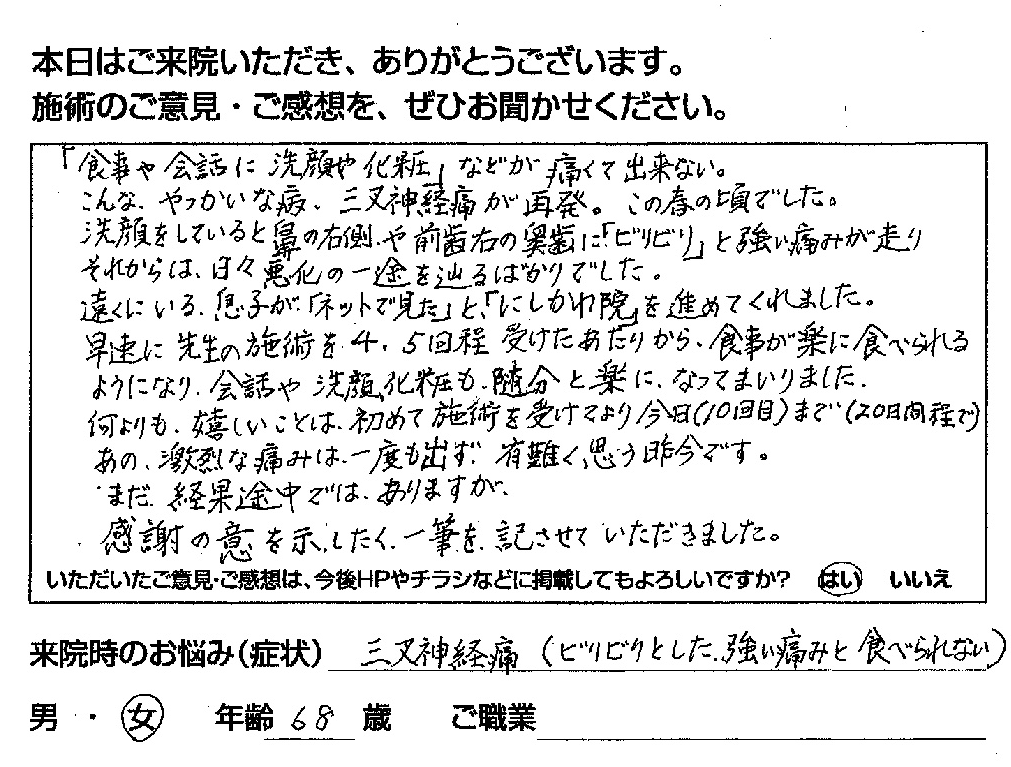 本日はご来院いただき、ありがとうございます。
施術のご意見・ご感想を、ぜひお聞かせください。
「食事や会話に洗顔や化粧」などが痛くて出来ない。
こんな、やっかいな病、三叉神経痛が再発。この春の頃でした。
洗顔をしていると鼻の右側、や前歯右の奥歯に「ビリビリ」と強い痛みが走り
それからは、日々悪化の一途を辿るばかりでした。
遠くにいる、息子が、「ネットで見た」と、「にしかわ院」を進めてくれました。
早速に先生の施術を4、5回程受けたあたりから、食事が楽に食べられる
ようになり、会話や洗顔、化粧も、随分と楽に、なってまいりました。
何よりも、嬉しいことは、初めて施術を受けてより今日(10回目)まで(20日間程で)
あの、激烈な痛みは、一度も出ず、有難く、思う昨今です。
まだ、経果途中では、ありますが、
感謝の意を示したく、一筆を、記させていただきました。
いただいたご意見・ご感想は、今後HPやチラシなどに掲載してもよろしいですか? はい いいえ
来院時のお悩み(症状) 三叉神経痛(ビリビリとした、強い痛みと食べられない)
男・女 年齢 68 歳 ご職業